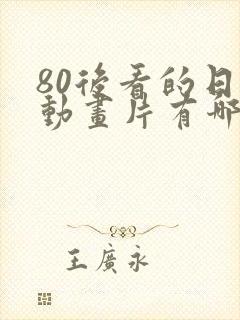 80後看的日
動畫片有哪
王廣永